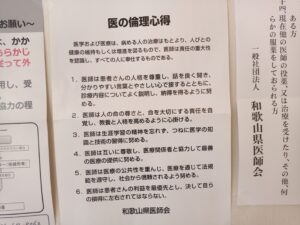 お願い～
医の倫理心得
医学および医療は、病める人の治療はもとより、人びとの
健康の維持もしくは増進を図るもので、医師は責任の重大性
を認識し、すべての人に奉仕するものである。
1．医師は患者さんの人格を尊重し、話を良く聞き、
分かりやすい言葉とやさしい心で接するとともに、
診療内容についてよく説明し、納得を得るように
努める。
2．医師は人の命の尊さと、命を大切にする責任を自
覚し、教養と人格を高めるように心掛ける。
3．医師は生涯学習の精神を忘れず、つねに医学の知
識と技術の習得に努める。
4．医師は互いに尊敬し、医療関係者と協力して最善
の医療の提供に努める。
5．医師は医療の公共性を重んじ、医療を通じて法規
範を遵守し、社会から信頼されるよう努める。
6．医師は患者さんの利益を最優先とし、決して自ら
の損得に左右されてはならない。
和歌山県医師会
ある方
現在他の医師の投薬、又は治療を受けたり、その他、何
らかの服薬をしておられる方
一般社団法人
和歌山県医師会